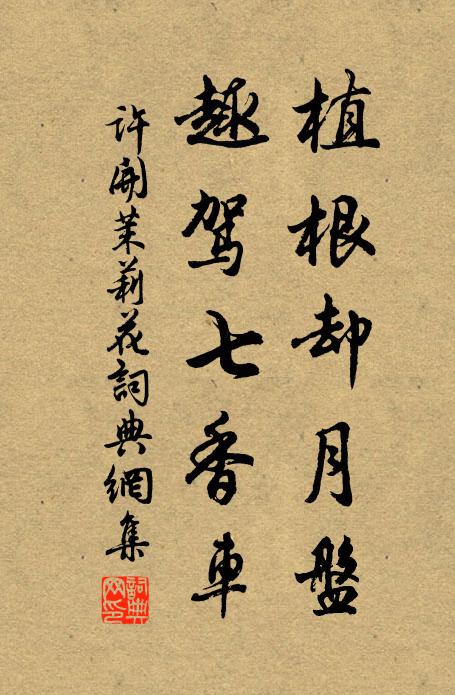 植根却月盤
趣駕七香車
許開茉莉花詞典網集
詞典网印